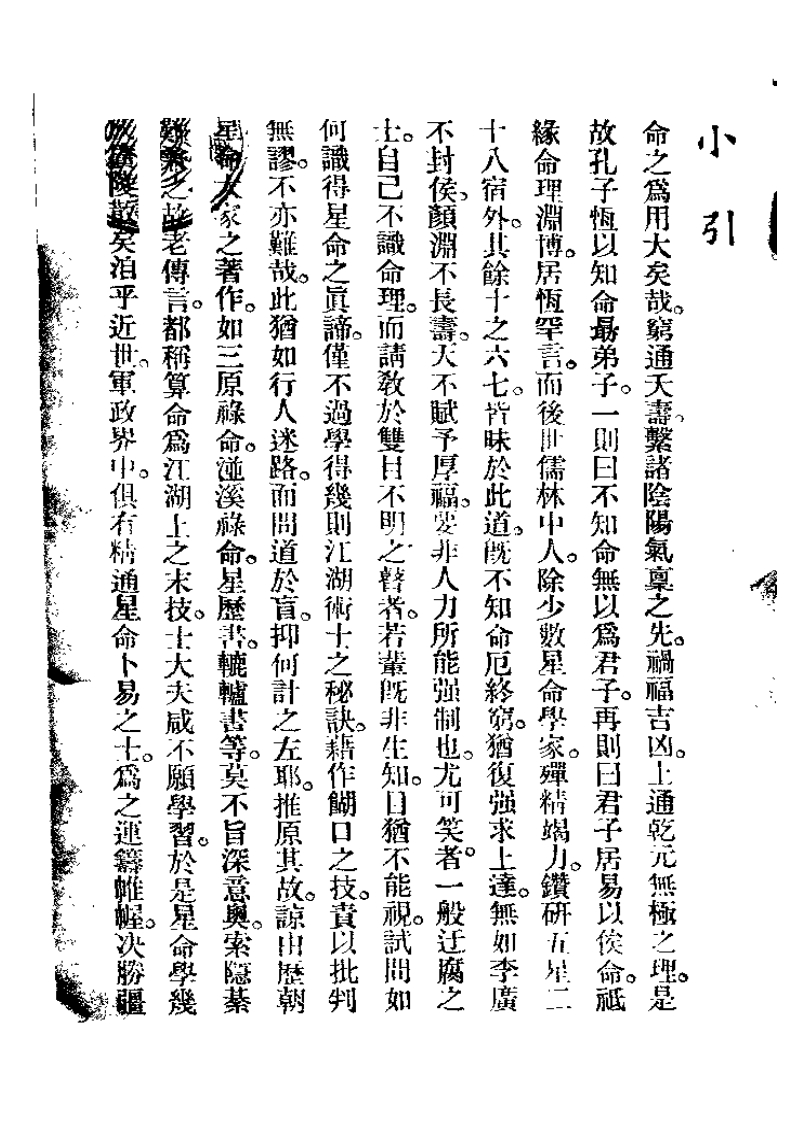 小引
命之爲用大矣哉。窮通夭壽。繫諸陰陽氣禀之先。禍福吉凶。上通乾元無極之理。是
故孔子恆以知命勗弟子。一則曰不知命無以爲君子。再則曰君子居易以俟命。祗
緣命理淵博。居恆罕言。而後世儒林中人。除少數星命學家。殫精竭力。鑽研五星二
十八宿外。其餘十之六七。皆昧於此道。旣不知命厄終窮。猶復强求上達。無如李廣
不封侯、顏淵不長壽。天不賦予厚福。要非人力所能强制也。尤可笑者。一般迂腐之
士。自己不識命理。而請敎於雙目不明之瞽者。若輩旣非生知。目猶不能視。試問如
何識得星命之眞諦。僅不過學得幾則江湖術士之秘訣。藉作餬口之技。責以批判
無謬。不亦難哉。此猶如行人迷路。而問道於盲。抑何計之左耶。推原其故。諒由歷朝
星命大家之著作。如三原祿命。滹溪祿命。星歷書。轆轤書等。莫不旨深意奧。索隱綦
難。之故老傳言。都稱算命爲江湖上之末技。士大夫咸不願學習。於是星命學幾
陵散矣洎乎近世。軍政界中。俱有精通星命卜易之士。爲之運籌帷幄。决勝疆